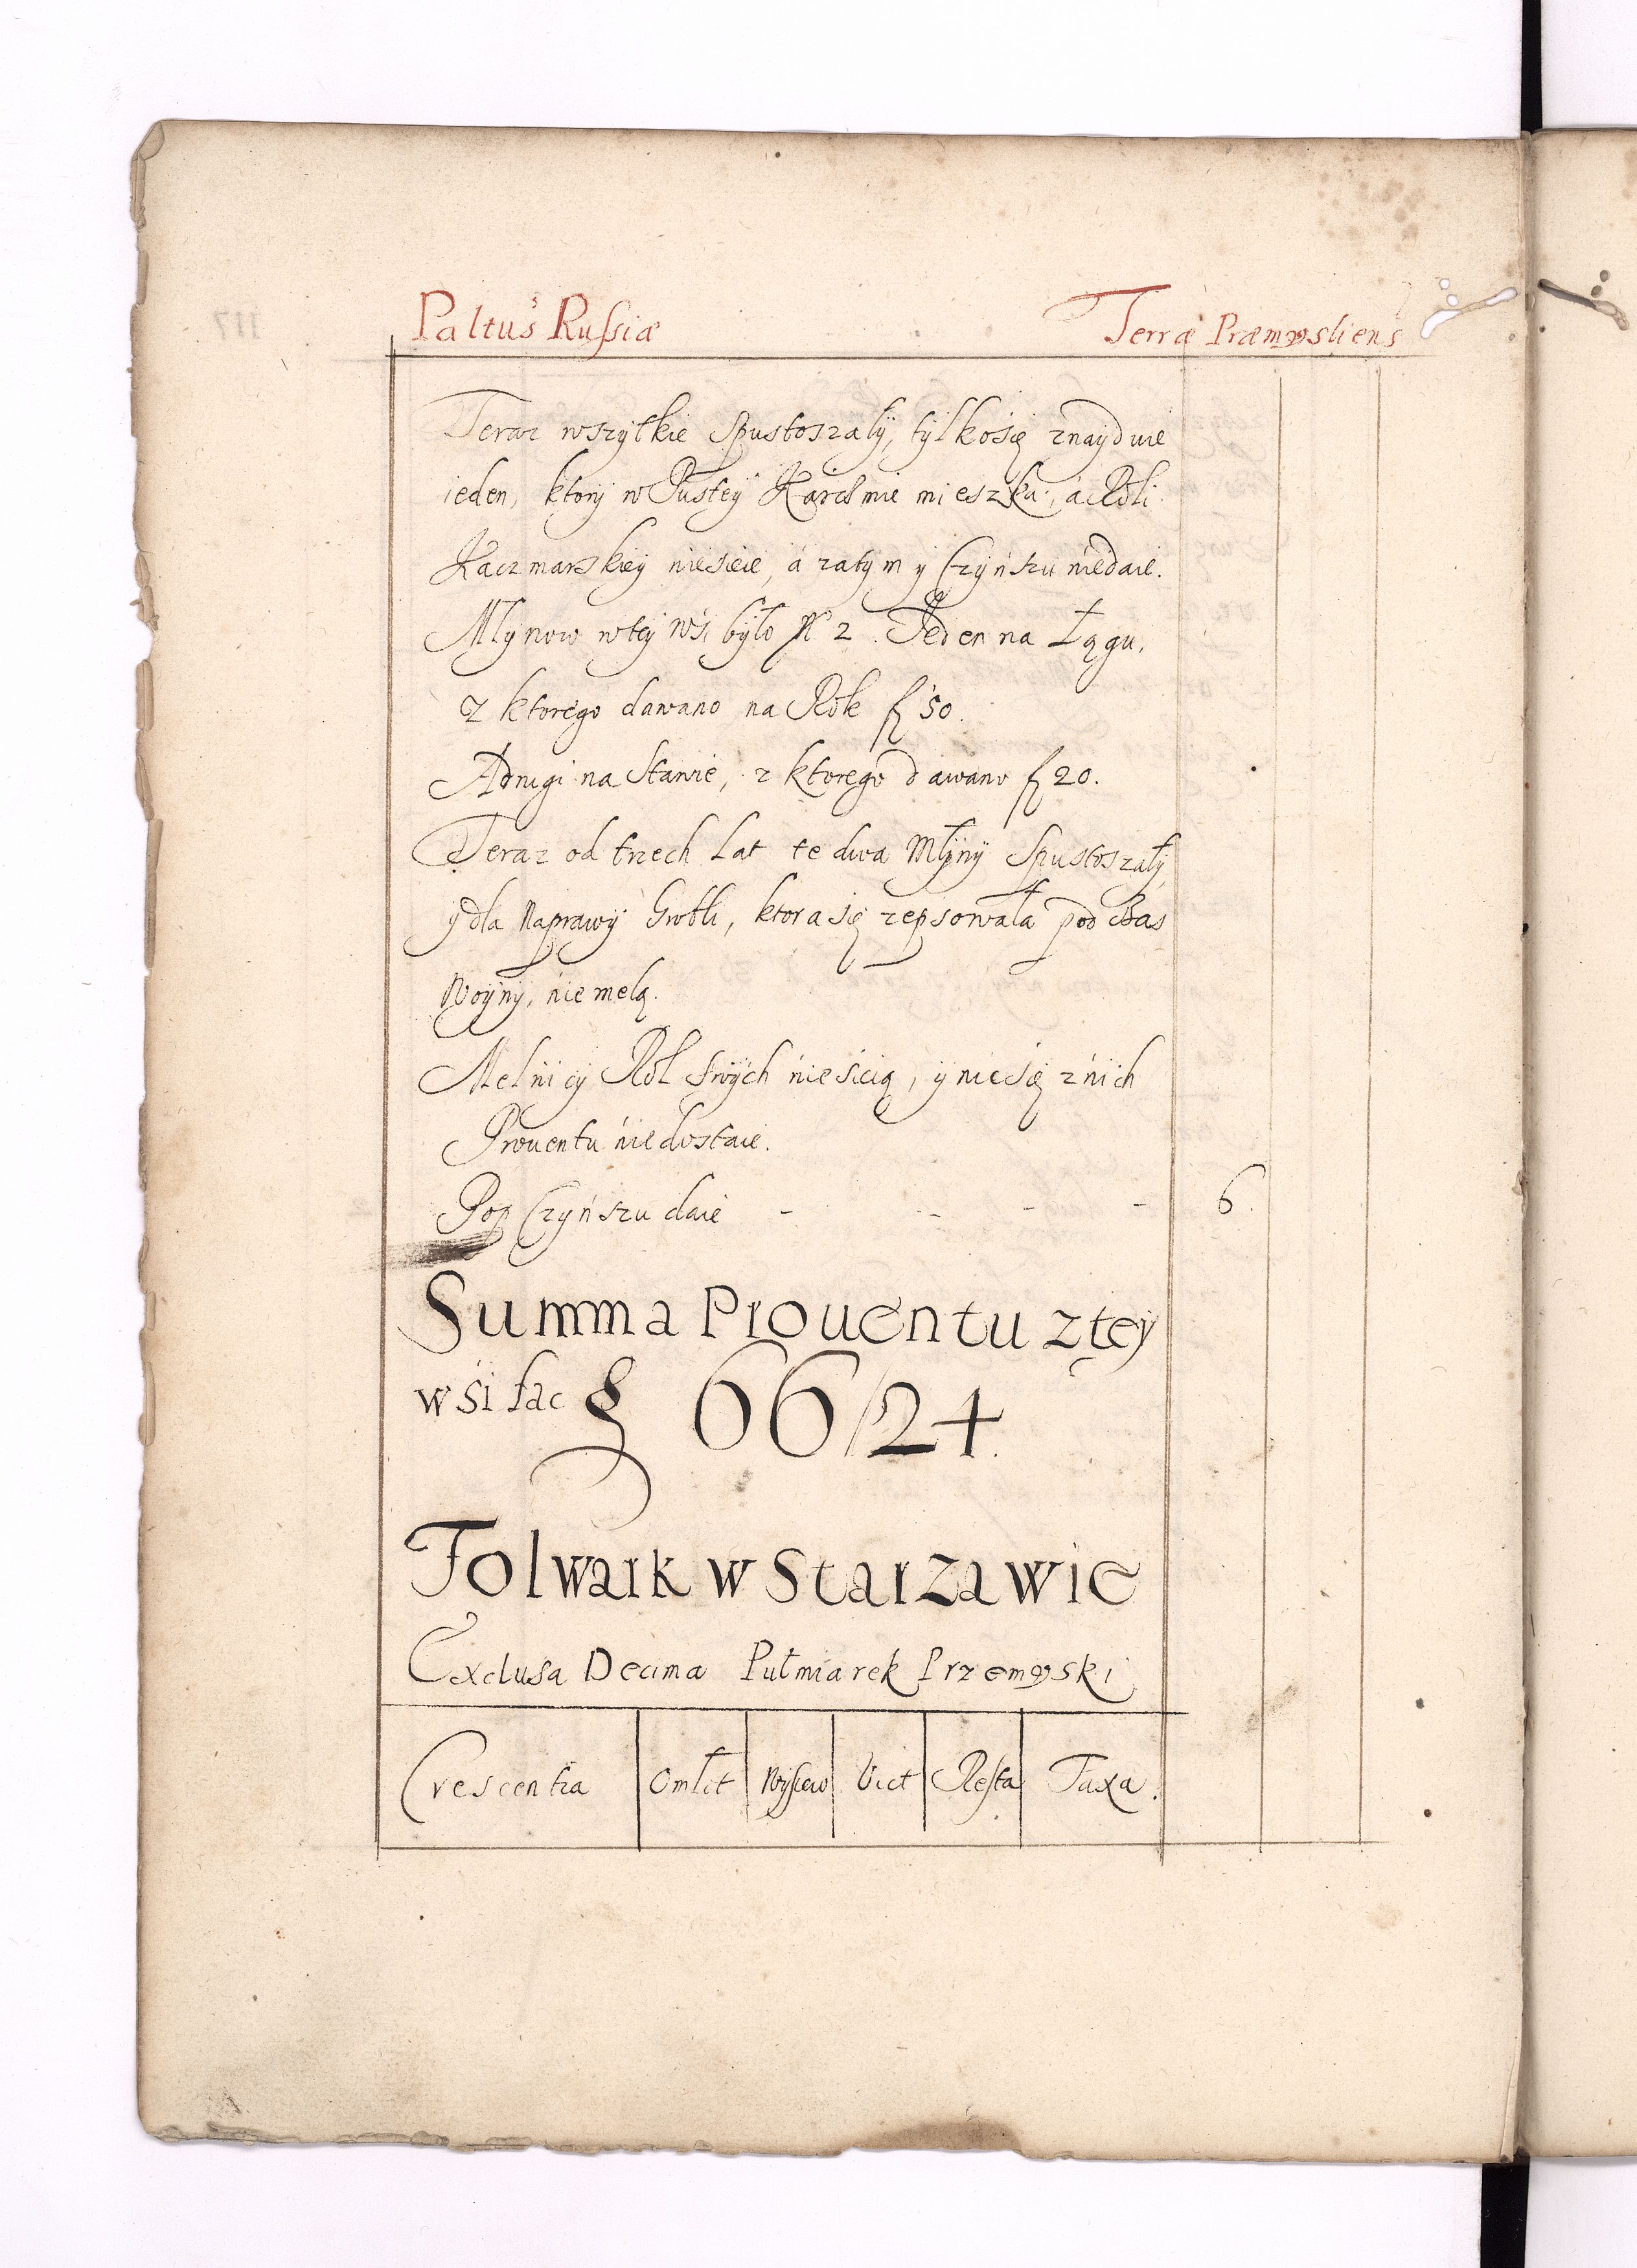 Paltus Russiæ Terræ Præmysliens
Teraz wszytkie Spustoszały, tylkosię znayduie
ieden, ktory w Pustey Karcżmie mieszka, a Roli
Kaczmarskiey niesieie, á zatym y Czynszu niedaie.
Młynow wtey wśi było N 2. Jeden na Łągu,
z ktorego dawano na Rok f 50.
A drugi na Stawie, z ktorego dawano f 20.
Teraz od trzech Lat te dwa Młyny Spustoszały
y dla Naprawy Grobli, ktora się zepsowała pod Czas
Woyny, nie melą.
Melnicy Rol swych nie sieią, y nic się z nich
Prouentu nie dostaie.
Pop Czynszu daie - - - - 6.
Summa Prouentu z tey
wśi fac f 66/24.
Folwark w Starzawie
Exclusa Decima Pułmiarek Przemyski
Crescentia Omłot Wysiew Vict Resta Taxa.